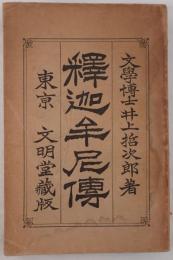 文學博士井上哲次郎著
釋迦牟尼傳
東京 文明堂藏版